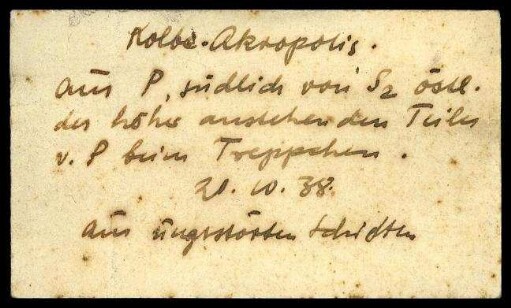 Kolbe-Akropolis.
aus P, südlich von S2 östl.
des höher anstehenden Teiles
v. P beim Treppchen.
21. 10. 38.
aus ungestörten Schichten